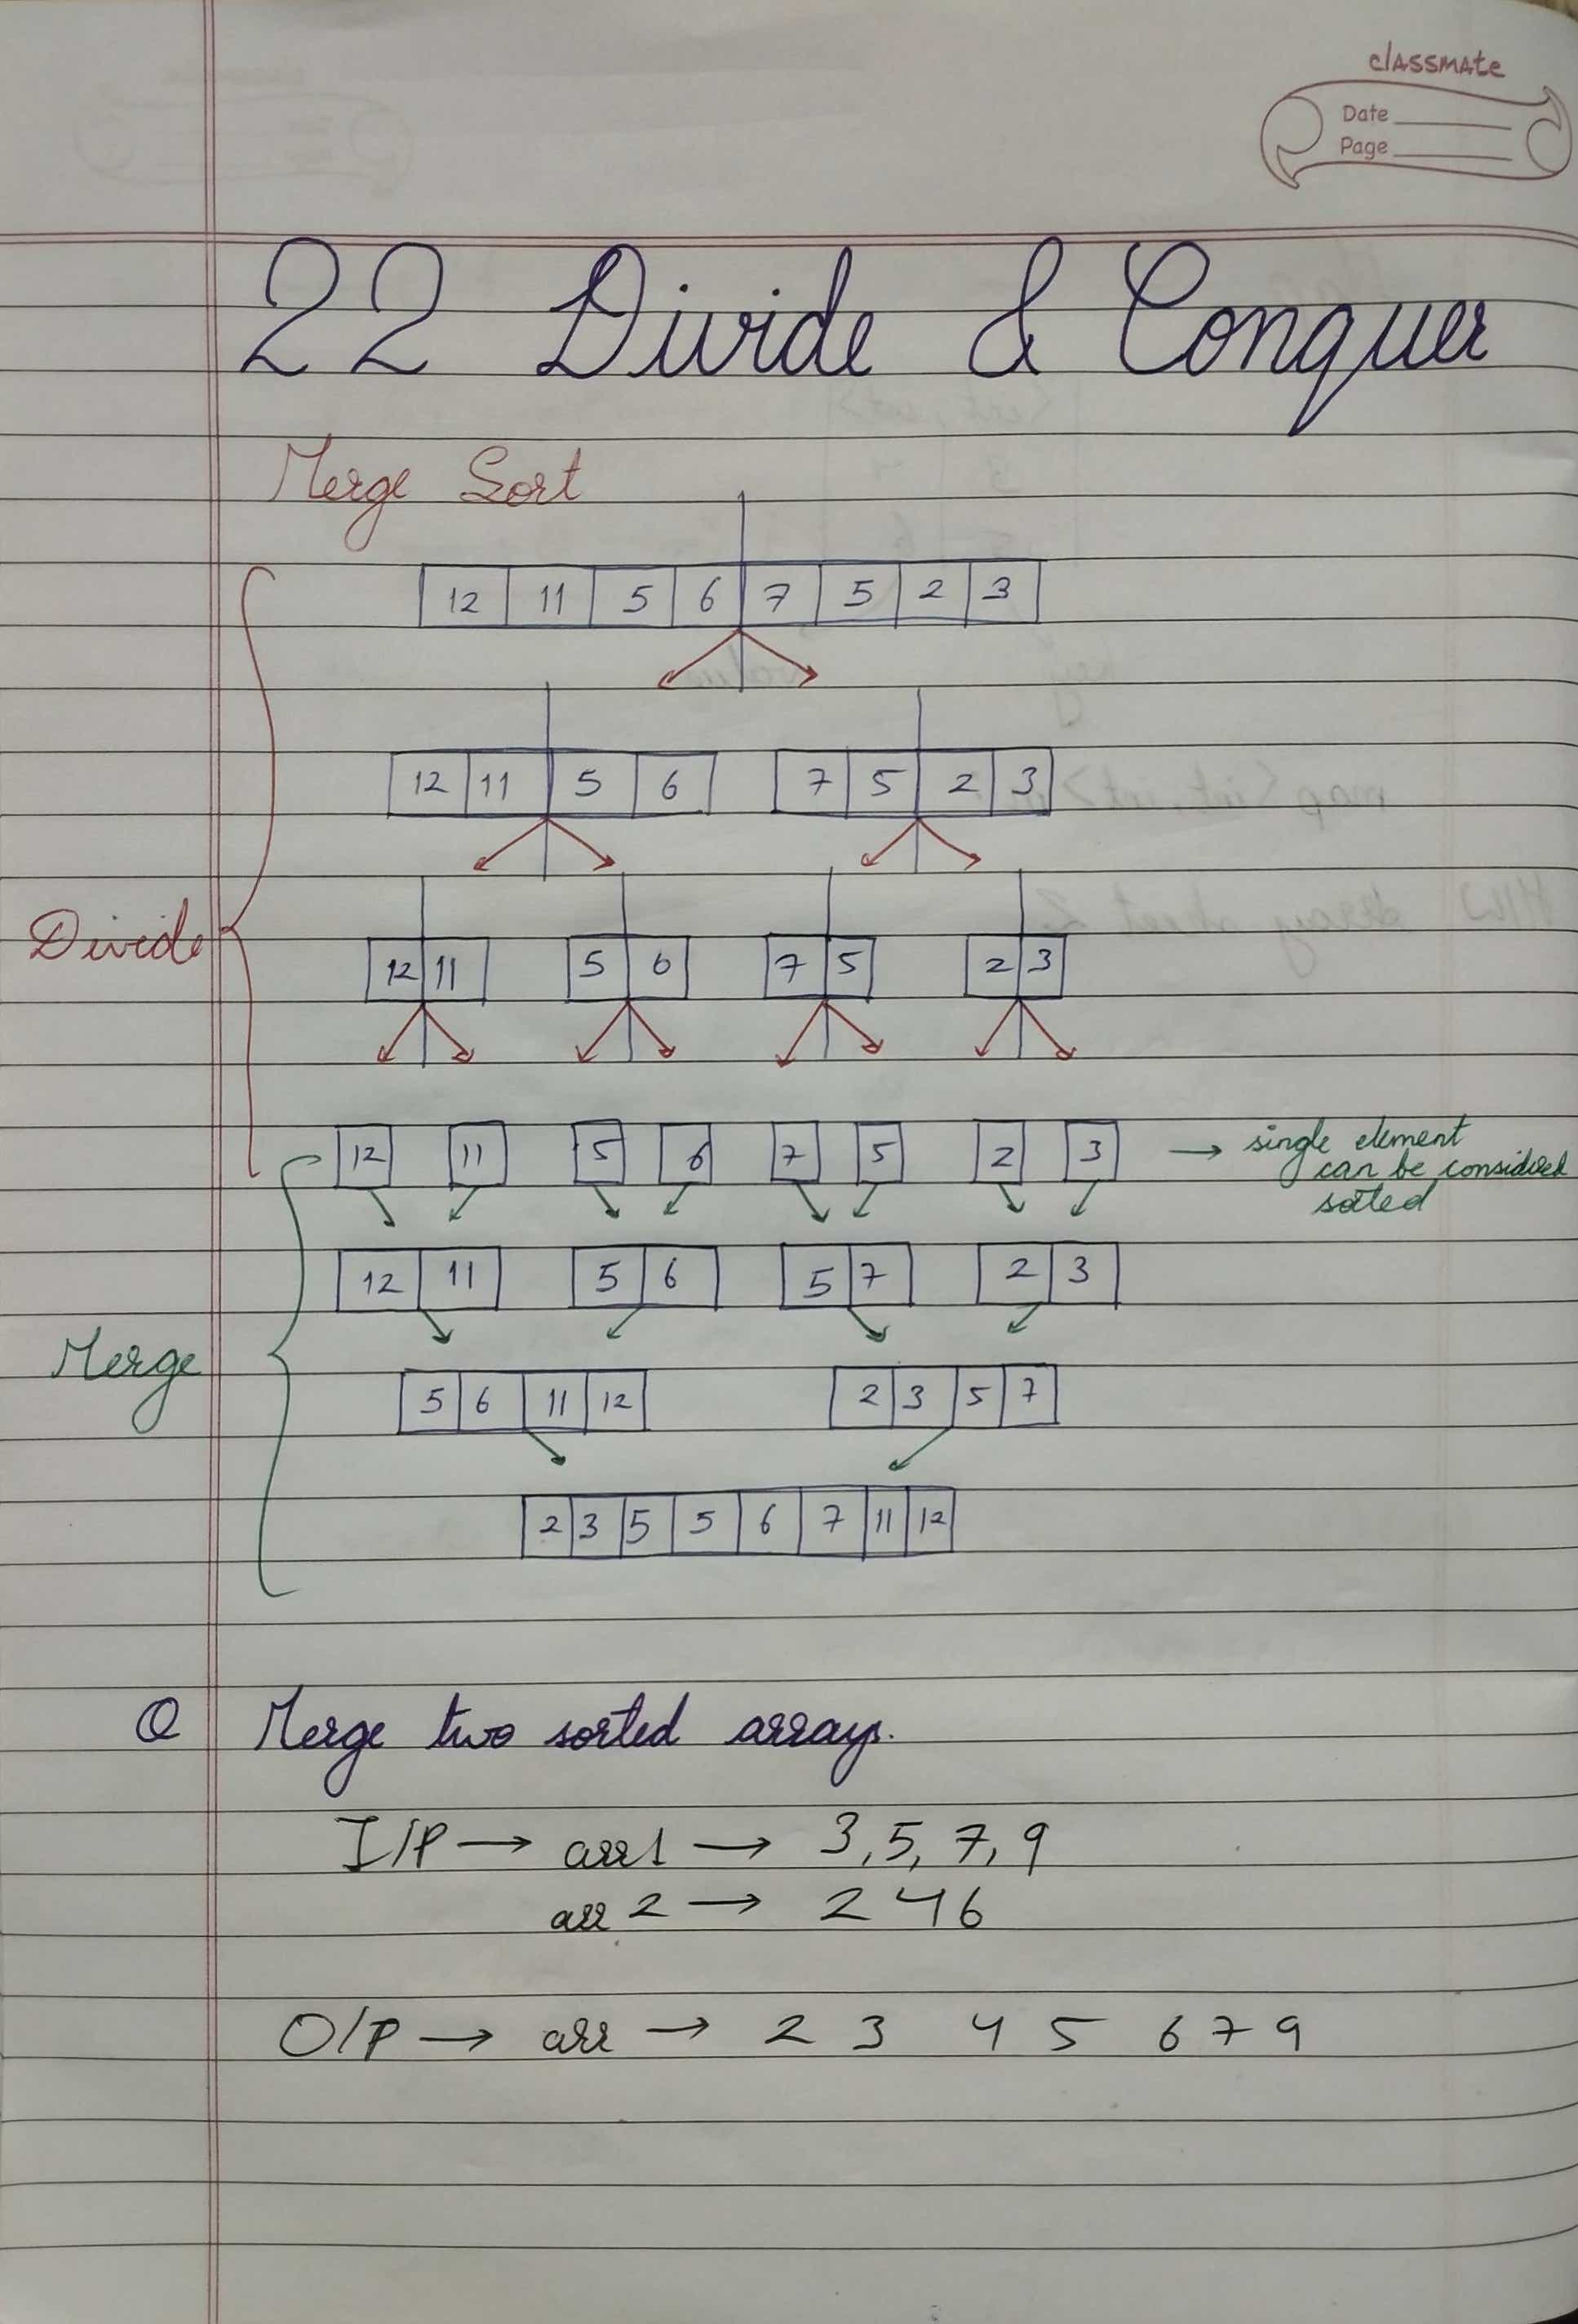 classmate
Date
Page
22 Divide & Conquer
Merge Sort
12 11 5 6 7 5 2 3
12 11 5 6 7 5 2 3
Divide
12 11 5 6 7 5 2 3
12 11 5 6 7 5 2 3 → single element
can be considered
sorted
12 11 5 6 5 7 2 3
Merge
5 6 11 12 2 3 5 7
2 3 5 5 6 7 11 12
Q Merge two sorted arrays.
I/P → arr1 → 3, 5, 7, 9
arr 2 → 2 4 6
O/P → arr → 2 3 4 5 6 7 9